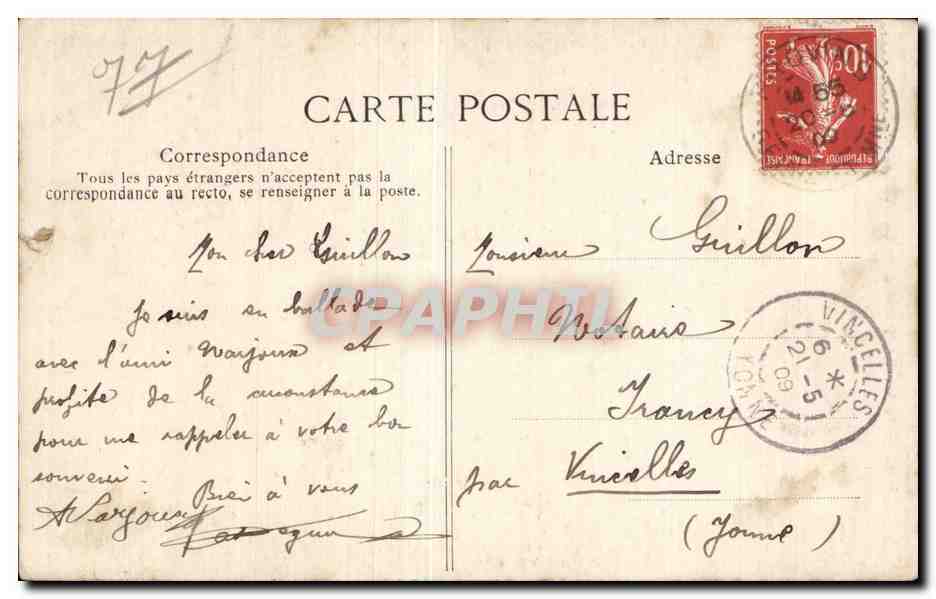 77
CARTE POSTALE
Correspondance
Tous les pays étrangers n'acceptent pas la
correspondance au recto, se renseigner à la poste.
Adresse
10
POSTES
REPUBLIQUE FRANÇAISE
Mon cher Guillon
Je suis en ballade
avec l'ami Varjoux et
profite de la circonstance
pour me rappeler à votre bon
souvenir.
Bien à vous
Varjoux
Monsieur Guillon
Notaire
Irancy
par Vincelles
(Yonne)
VINCELLES
6 *
21-5
09
YONNE
CPAPHIL